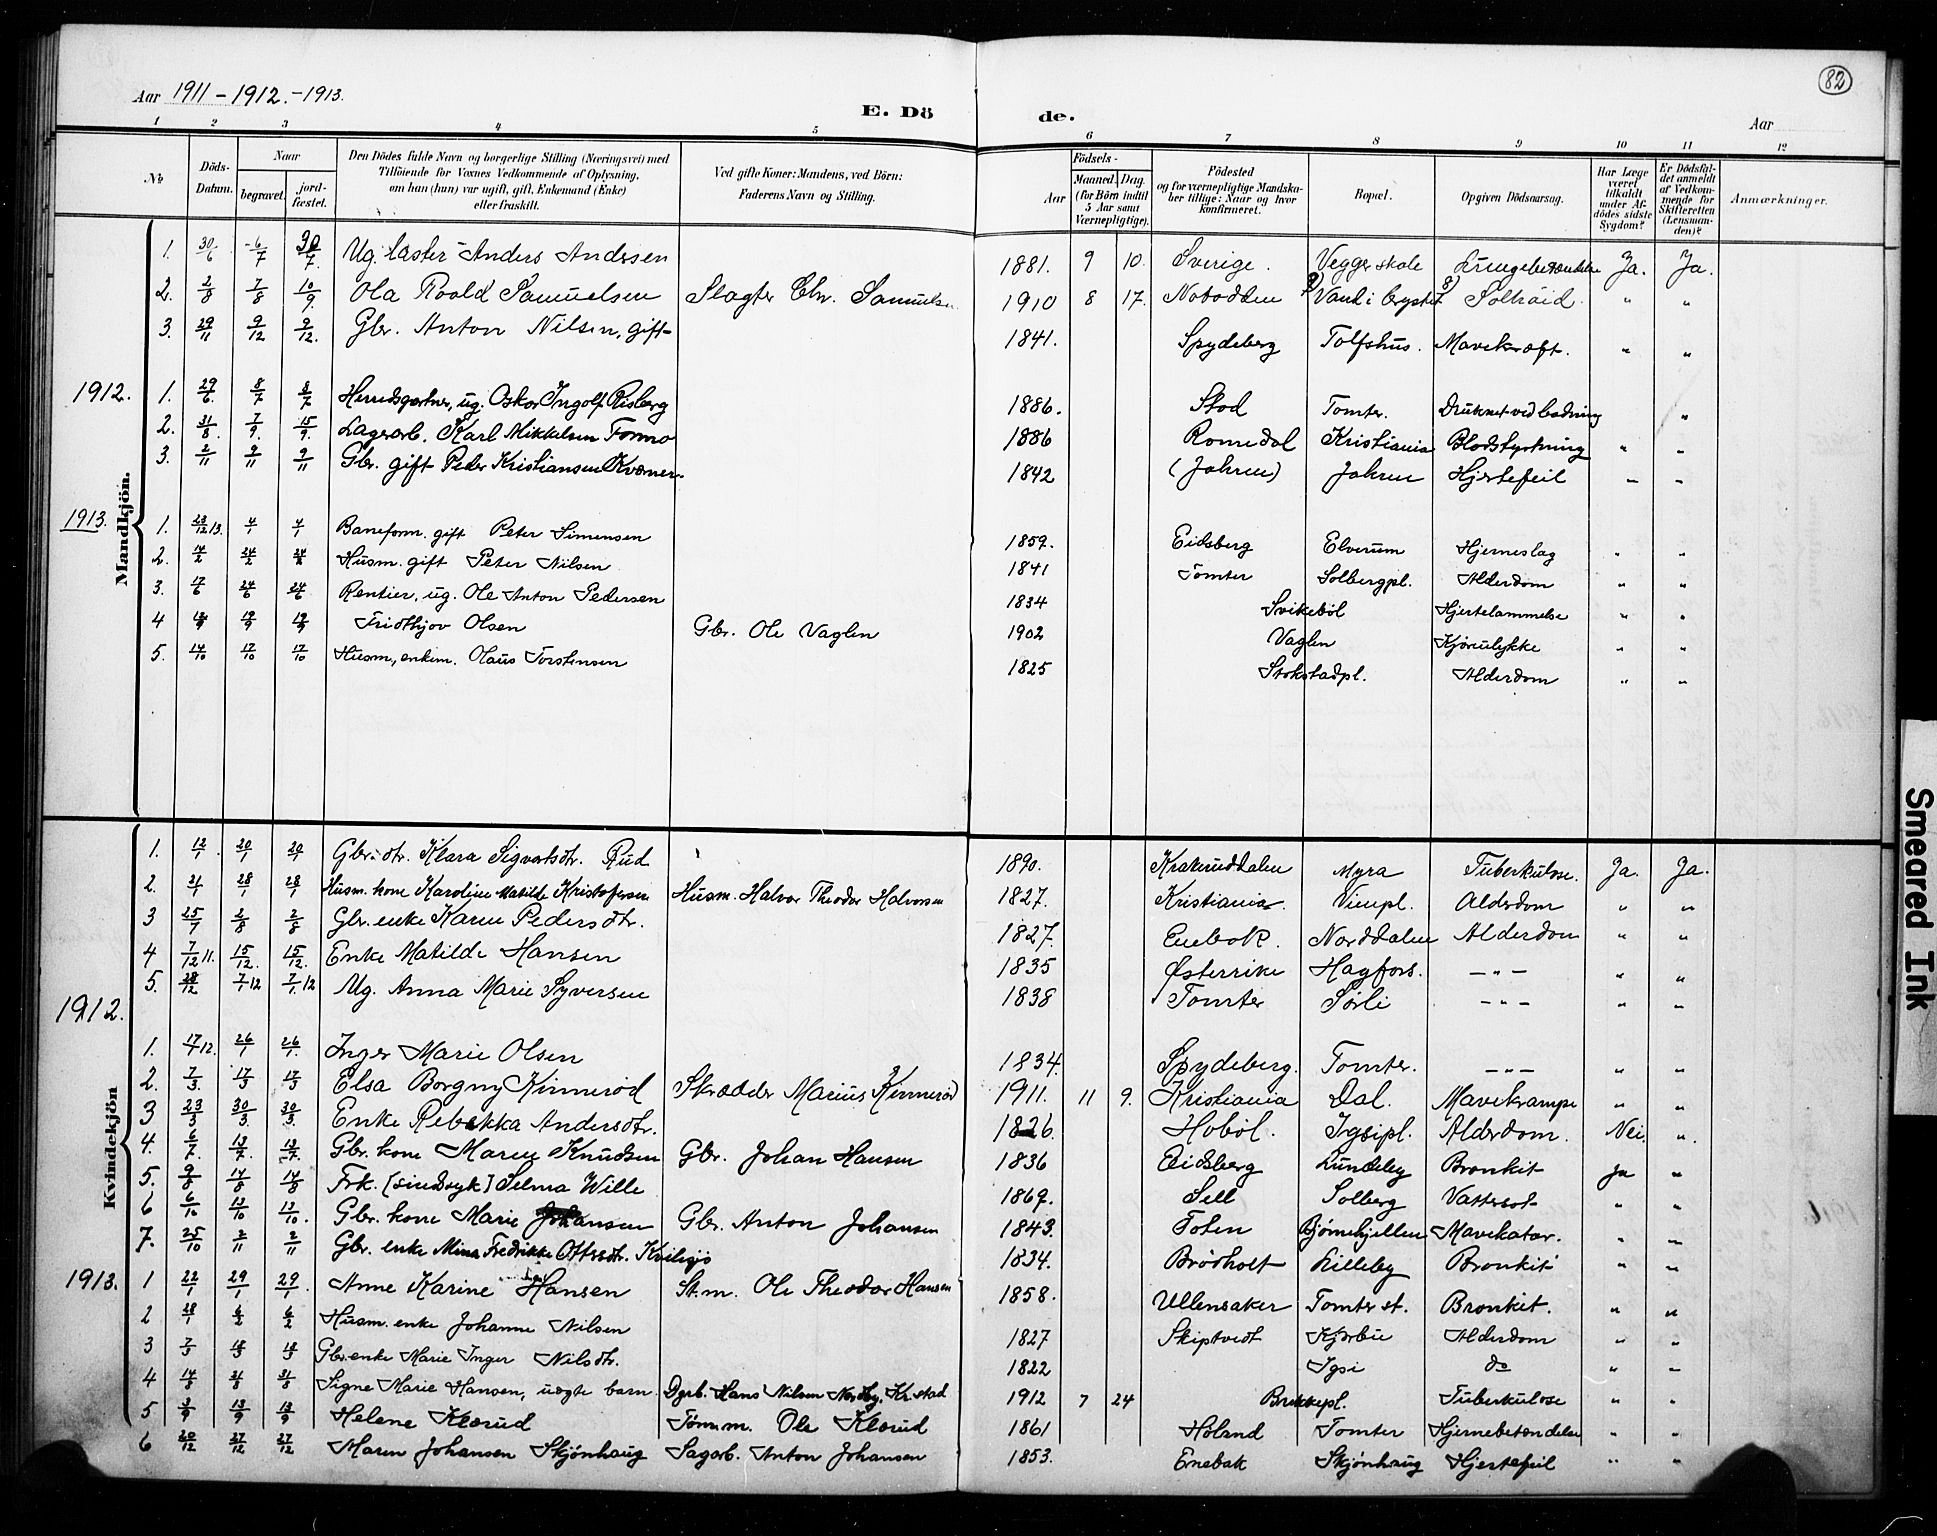 Aar 1911 - 1912. - 1913.
E. Dö de.
Aar
82
1 2 3 4 5 6 7 8 9 10 11 12
No
Döds-Datum.
Naar
begravet.
jord-fæstet.
Den Dödes fulde Navn og borgerlige Stilling (Næringsvei) med
Tilföiende for Voxnes Vedkommende af Oplysning,
om han (hun) var ugift, gift, Enkemand (Enke)
eller fraskilt.
Ved gifte Koner: Mandens, ved Börn:
Faderens Navn og Stilling.
Födsels-
Aar
Maaned. Dag.
(for Börn indtil
5 Aar samt
Værnepligtige).
Födested
og for værnepligtige Mandska-
ber tillige: Naar og hvor
konfirmeret.
Bopæl.
Opgiven Dödsaarsag.
Har Læge
været
tilkaldt
under Af-
dödes sidste
Sygdom?
Er Dödsfal-
det anmeldt
af Vedkom-
mende for
Skifteretten
(Lensman-
den)?
Anmærkninger.
Mandkjön.
1. 30/6 6/7 30/7. Ug. Anders Andersen 1881. 9 10. Sverige. Vegger skole Ja. Ja.
2. 2/8 7/8 10/9. Ola Roald Samuelsen Slagter Chr. Samuelsen 1910 8 17. Notodden " "
3. 29/11 9/12 9/12. Gbr. Anton Nilsen, gift 1841. Spydeberg Tolfshus. Mavekræft. " "
1912. 1. 29/6. 8/7 8/7 Herredsgartner, ug. Oskar Ingolf Risberg 1886. Stod Tomter. Druknet ved badning "
2. 31/8. 7/9. 15/9. Lagerarb. Karl Mikkelsen Formo 1886 Romedal Kristiania Blodstyrtning " "
3. 2/11 9/11 9/11 Gbr. gift Peder Kristiansen Kværner 1842 (Jahren) Jahren Hjertefeil - -
1913. 1. 23/12 13. 4/1 4/1 Baneform. gift Peter Simensen 1859. Eidsberg Elverum Hjerneslag " "
2. 14/2 24/2 24/2 Husm. gift Peter Nilsen 1841 Tomter Solbergpl. Alderdom " "
3. 17/6 24/6 24/6 Rentier, ug. Ole Anton Pedersen 1834 Svikebøl Hjertelammelse " "
4 19/9 19/9 Fridthjov Olsen Gbr. Ole Vaglen 1902 Vaglen Kjøreulykke " "
5. 14/10 17/10 17/10 Husm., enkem. Olaus Torstensen 1825 Stokstadpl. Alderdom " "
Kvindekjön
1. 12/1 20/1 20/1 Gbr. dtr. Klara Sigvartsdtr. Rud 1890. Krakeruddalen Myra Tuberkulose. Ja. Ja.
2. 21/1 28/1 28/1 Husm. kone Karoline Matilde Kristofersen Husm. Halvor Theodor Halvorsen 1827. Kristiania. Vienpl. Alderdom " "
3 25/7 2/8 2/8 Gbr. enke Karen Pedersdtr. 1827. Enebok. Norddalen Alderdom " "
4 7/12 11. 15/12. 15/12. Enke Matilde Hansen 1835 Østerrike Hagfors. - " - " "
5. 28/12 7/1 12 7/1. 12 Ug. Anna Marie Syversen 1838 Tomter Sørli - " - " "
1912.
1. 17/1 12. 26/1 26/1. Inger Marie Olsen 1834. Spydeberg. Tomter. - " - " "
2. 7/3. 17/3 17/3 Elsa Borgny Kinnerød Skrædder Marius Kinnerød 1911. 11 9. Kristiania Dal. Mavekrampe " "
3 23/3 30/3. 30/3 Enke Rebekka Andersdtr. 1826. Hobøl. Igsipl. Alderdom. Nei. "
4. 6/7. 13/7. 13/7. Gbr. kone Maren Knudsen Gbr. Johan Hansen 1836 Eidsberg Lundeby Bronkit Ja "
5. 9/8 14/8 14/8 Frk. [sindssyk] Selma Wille 1869. Sell Solberg Vattersot " "
6 6/10 13/10 13/10. Gbr. kone Marie Johansen Gbr. Anton Johansen 1843. Toten Bjørnehjellen Mavekatar. " "
7. 25/10 2/11 2/11 Gbr. enke Mina Fredrikke Ottersdtr. Kvilesjø 1834. Brødholt Lilleby Bronkit " "
1913. 1 22/1 29/1 29/1. Anne Karine Hansen St.m. Ole Theodor Hansen 1858. Ullensaker Tomter st. Bronkit. " "
2 28/1 6/2 6/2 Husm. enke Johanne Nilsen 1827 Skiptvedt Kjærbu Alderdom " "
3 7/3 Gbr. enke Marie Inger Nilsdtr. 1822 Igsi do " -
4 14/8 21/8 21/8 Signe Marie Hansen, uægte barn. Dgrb. Hans Nilsen Nordby, Kr.stad 1912 7 24 Brekkepl. Tuberkulose " "
5 3/9 13/9 13/9 Helene Klærud Tømm. Ole Klærud 1861 Høland Tomter Hjernebetændelse " "
6 20/12 27/12 27/12 Maren Johansen Skjønhaug Sagarb. Anton Johansen 1853. Enebak Skjønhaug Hjertefeil " "
Smeared Ink